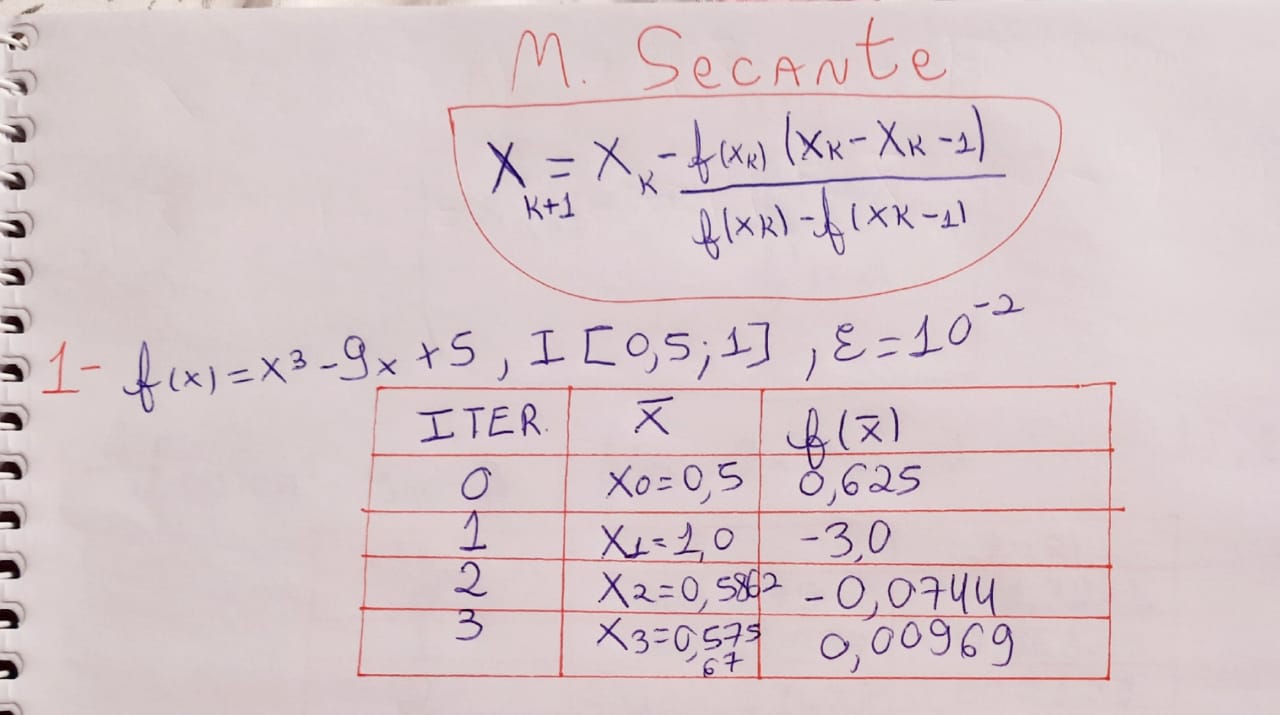 M. SECANTE
X_{K+1} = X_K - f(X_K) (X_K - X_{K-1}) / f(X_K) - f(X_{K-1})
1- f(x) = x³ - 9x + 5, I [0,5; 1], ε = 10⁻²
ITER. x̄ f(x̄)
0 X0=0,5 0,625
1 X1=1,0 -3,0
2 X2=0,5862 -0,0744
3 X3=0,57567 0,00969